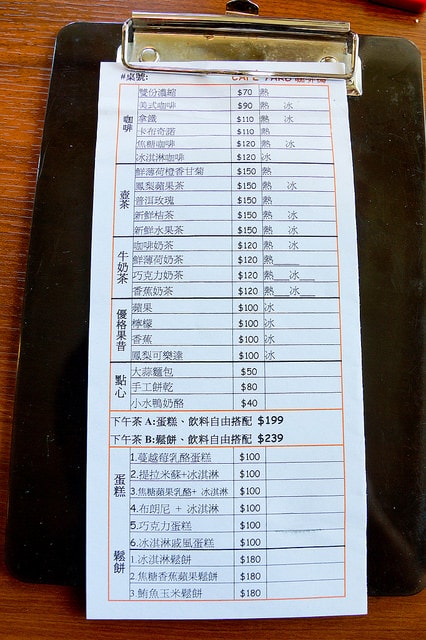 #桌號: CAFE YARD 咖啡
咖啡
雙份濃縮 $70 熱
美式咖啡 $90 熱 冰
拿鐵 $110 熱 冰
卡布奇諾 $110 熱
焦糖咖啡 $120 熱 冰
冰淇淋咖啡 $120 冰
壺茶
鮮薄荷橙香甘菊 $150 熱
鳳梨蘋果茶 $150 熱 冰
普洱玫瑰 $150 熱
新鮮桔茶 $150 熱 冰
新鮮水果茶 $150 熱 冰
牛奶茶
咖啡奶茶 $120 熱 冰
鮮薄荷奶茶 $120 熱
巧克力奶茶 $120 熱 冰
香蕉奶茶 $120 熱 冰
優格果昔
蘋果 $100 冰
檸檬 $100 冰
香蕉 $100 冰
鳳梨可樂達 $100 冰
點心
大蒜麵包 $50
手工餅乾 $80
小水鴨奶酪 $40
下午茶 A:蛋糕、飲料自由搭配 $199
下午茶 B:鬆餅、飲料自由搭配 $239
蛋糕
1.蔓越莓乳酪蛋糕 $100
2.提拉米蘇+冰淇淋 $100
3.焦糖蘋果乳酪+ 冰淇淋 $100
4.布朗尼 + 冰淇淋 $100
5.巧克力蛋糕 $100
6.冰淇淋戚風蛋糕 $100
鬆餅
1.冰淇淋鬆餅 $180
2.焦糖香蕉蘋果鬆餅 $180
3.鮪魚玉米鬆餅 $180